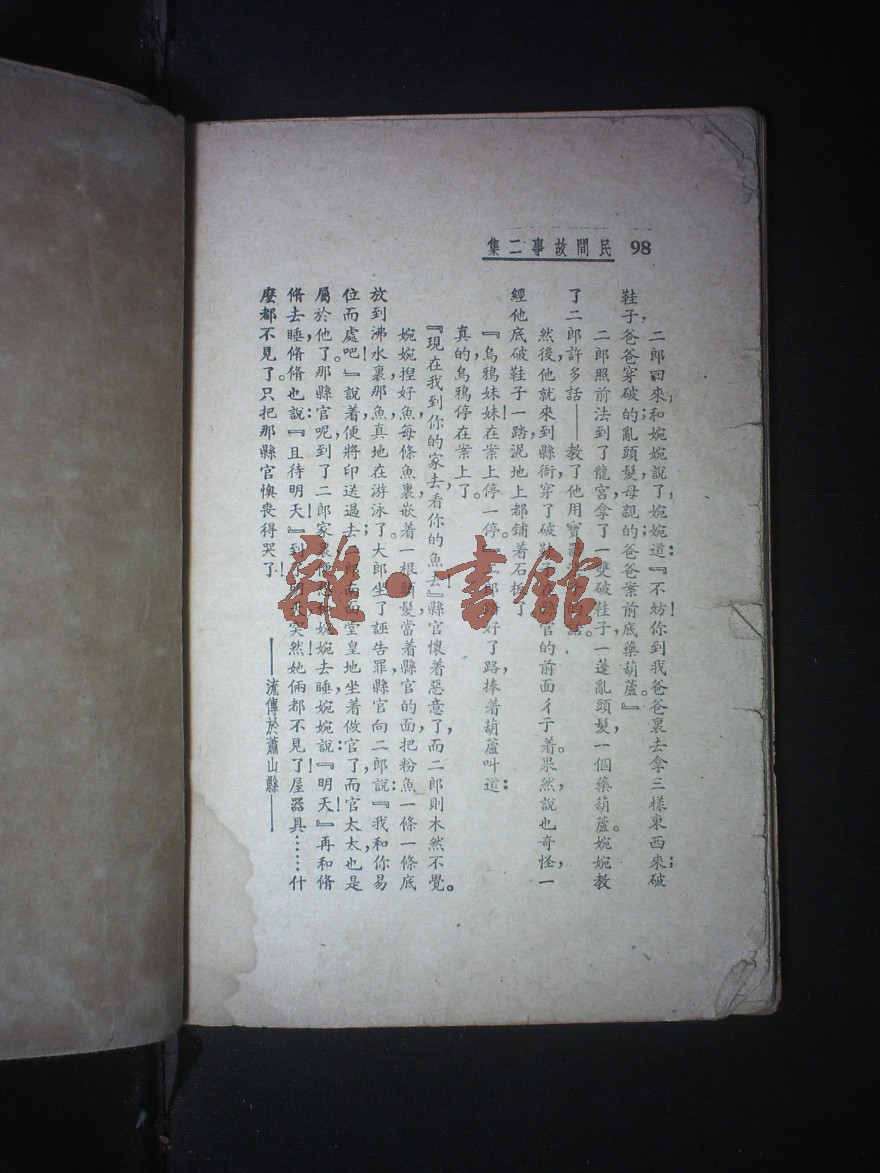 98 民間故事二集
二郎回來，和婉婉說了；婉婉道：『不妨！你到我爸爸裏去拿三樣東西來；破
鞋子，爸爸穿破的；亂頭髮，母親的；爸爸案前底藥葫蘆。』
二郎照前法到了龍宮，拿了一雙破鞋子，一蓬亂頭髮，一個藥葫蘆。婉婉教
了二郎許多話——教了他用寶
然後，他就來到縣衙，穿了破鞋 官的前面彳亍着。果然，說也奇怪，一
經他底破鞋子一踏，泥地上都鋪着石板了
『烏鴉妹妹！在案上停一停。』二郎 好了路，捧着葫蘆叶道：
真的，烏鴉停在案上了。
『現在，我到你的家去，看你的魚去！』縣官懷着惡意了，而二郎則木然不覺。
婉婉揑好魚，每條魚裏嵌着一根頭髮，當着縣官的面，把粉魚一條一條底
放到沸水裏，那魚真地在游泳了；大郎坐了誣告罪，縣官向二郎說：『我和你易
位而處吧！』說着，便將印送過去，二郎而面堂皇地坐着做官了，而官太太，也是
屬於他了。那縣官呢，到了二郎家裏，便 婉婉去睡，婉婉說：『明天！』再和脩
脩去睡，脩脩也說：『且待明天！』到 突然她倆都不見了！屋，器具……什
麼都不見了。只把那縣官懊喪得哭了！
——流傳於蕭山縣——
雜·書館